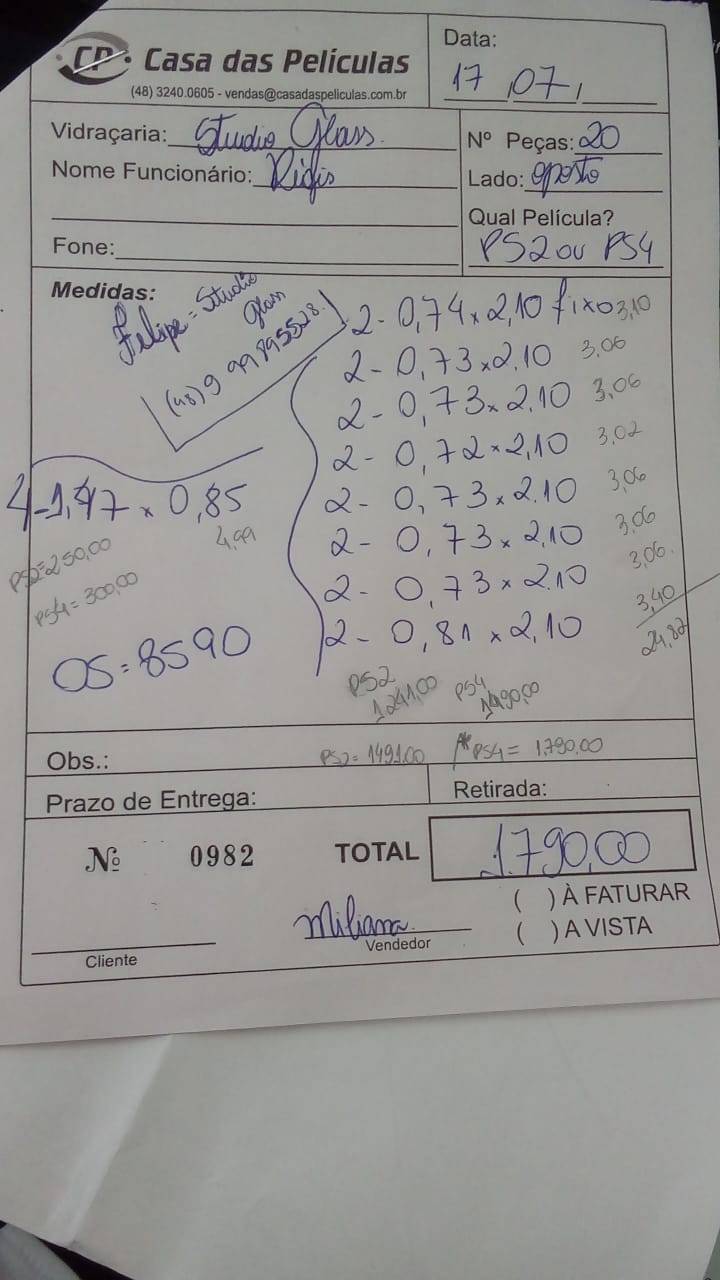 CP Casa das Películas
(48) 3240.0605 - vendas@casadaspeliculas.com.br
Data:
17, 07,
Vidraçaria: Studio Glass.
Nome Funcionário:
Fone:
Nº Peças: 20
Lado: oposto
Qual Película?
PS2 ou PS4
Medidas:
Felipe = Studio
Glass
(48) 9 99895528.
2 - 0,74 x 2,10 fixo 3,10
2 - 0,73 x 2.10 3,06
2 - 0,73 x 2.10 3,06
2 - 0,72 x 2,10 3,02
2 - 0,73 x 2.10 3,06
2 - 0,73 x 2,10 3,06
2 - 0,73 x 2.10 3,06.
2 - 0,81 x 2,10 3,40
24,82
4 - 1,47 x 0,85
4,99
PS2 = 250,00
PS4 = 300,00
OS = 8590
PS2
1.241,00
PS4
1490,00
Obs.: PS2 = 1491.00 PS4 = 1.790,00
Prazo de Entrega:
Retirada:
Nº 0982
TOTAL 1.790,00
( ) À FATURAR
( ) A VISTA
Miliana
Cliente
Vendedor